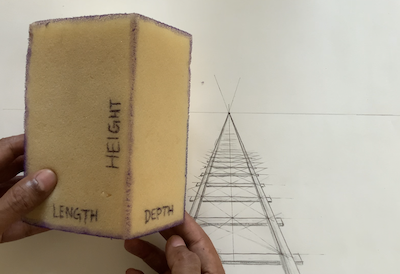 HEIGHT
LENGTH
DEPTH